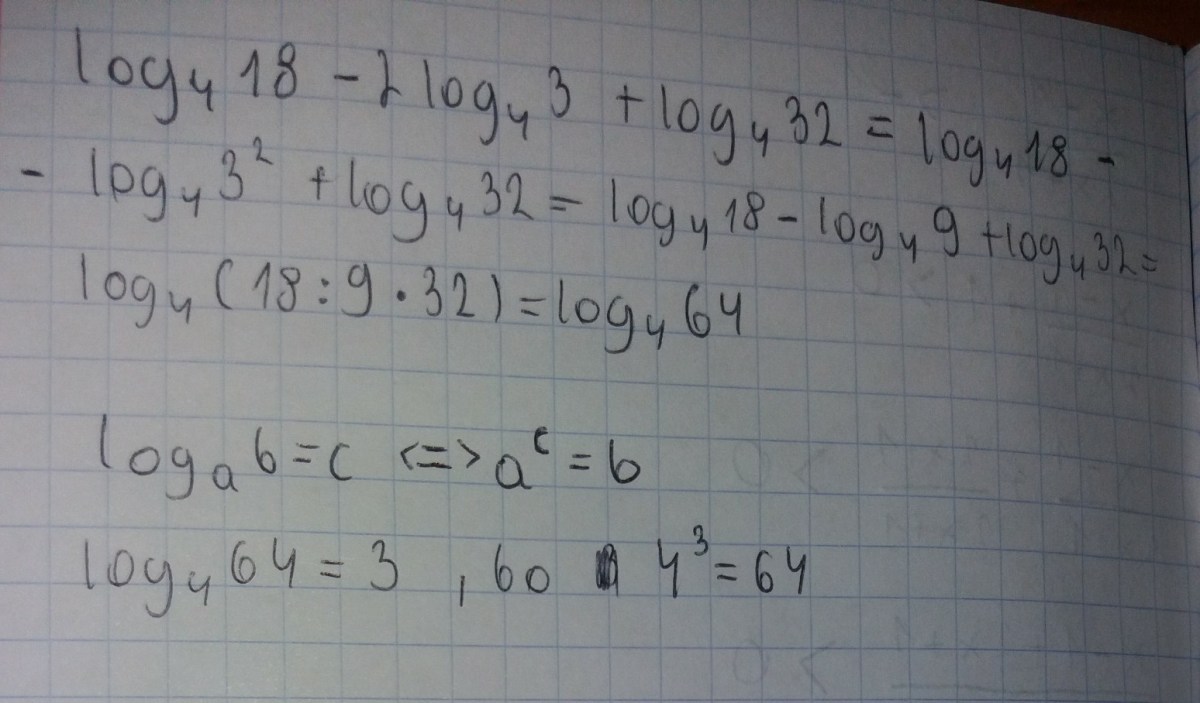 log₄ 18 - 2 log₄ 3 + log₄ 32 = log₄ 18 -
- log₄ 3² + log₄ 32 = log₄ 18 - log₄ 9 + log₄ 32 =
log₄ (18 : 9 · 32) = log₄ 64
logₐ b = c <=> aᶜ = b
log₄ 64 = 3 , bo 4³ = 64